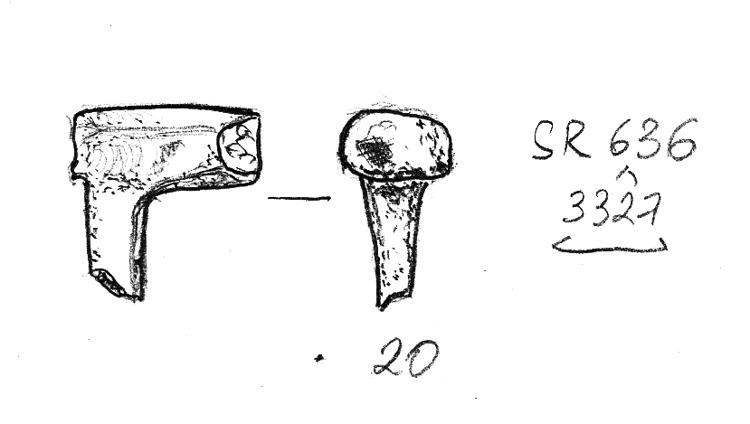 SR 636
3327
20